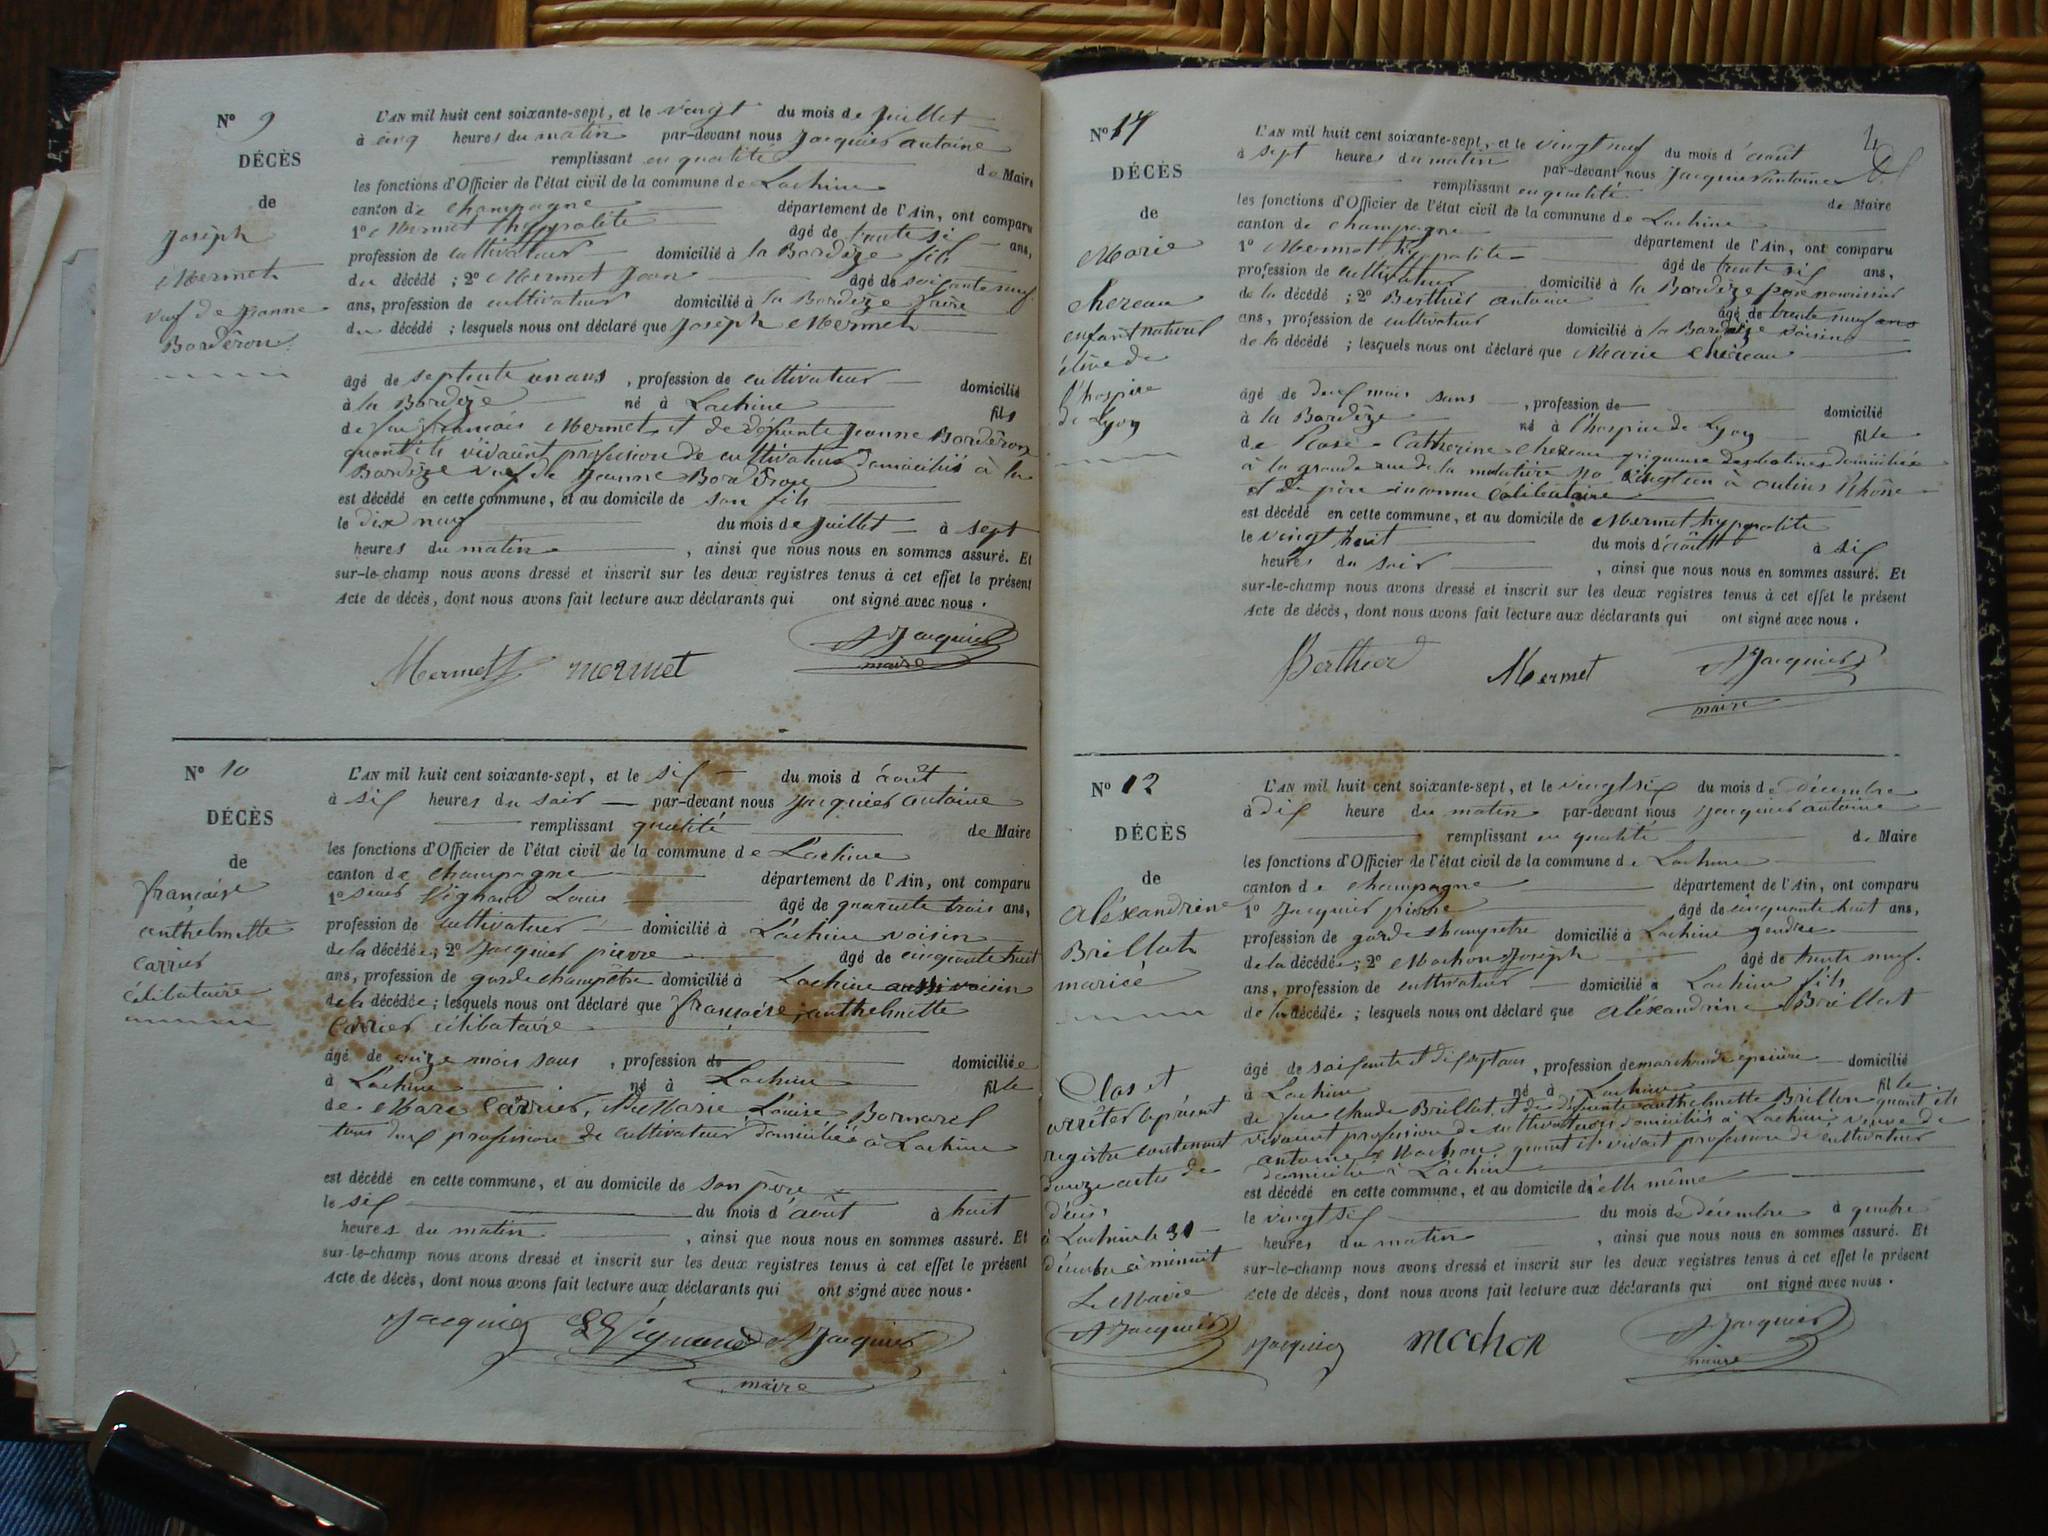 N° 9
DÉCÈS
de
Joseph
Mermet
veuf de Jeanne
Bordéron
L'AN mil huit cent soixante-sept, et le vingt du mois de Juillet
à cinq heures du matin par-devant nous Jacquier antoine
remplissant en qualité de Maire
les fonctions d'Officier de l'état civil de la commune de Lachine
canton de champagne département de l'Ain, ont comparu
1° Mermet hyppolite âgé de trente six ans,
profession de cultivateur domicilié à la Bordèze fils
du décédé ; 2° Mermet Jean âgé de soixante neuf
ans, profession de cultivateur domicilié à la Bordèze frère
du décédé ; lesquels nous ont déclaré que Joseph Mermet
âgé de septente un ans , profession de cultivateur domicilié
à la Bordèze né à Lachine fils
de feu francois Mermet et de défunte Jeanne Bordéron
quant ils vivaint profession de cultivateur domiciliés à la
Bordèze veuf de Jeanne Bordéron
est décédé en cette commune, et au domicile de son fils
le dix neuf du mois de Juillet à sept
heures du matin , ainsi que nous nous en sommes assuré. Et
sur-le-champ nous avons dressé et inscrit sur les deux registres tenus à cet effet le présent
Acte de décès, dont nous avons fait lecture aux déclarants qui ont signé avec nous.
Mermet mermet A Jacquier
maire
N° 10
DÉCÈS
de
françoise
anthelmette
carrier
célibataire
L'AN mil huit cent soixante-sept, et le six du mois d'août
à six heures du soir par-devant nous Jacquier antoine
remplissant qualité de Maire
les fonctions d'Officier de l'état civil de la commune de Lachine
canton de champagne département de l'Ain, ont comparu
1° sieur Vignaud Louis âgé de quarante trois ans,
profession de cultivateur domicilié à Lachine voisin
de la décédée ; 2° Jacquier pierre âgé de cinquante huit
ans, profession de garde champetre domicilié à Lachine aussi voisin
de la décédée ; lesquels nous ont déclaré que françoise anthelmette
carrier célibataire
âgé de onize mois sans , profession de domiciliée
à Lachine né à Lachine fille
de Marc Carrier, et de Marie Louise Bornarel
tous deux profession de cultivateur domiciliés à Lachine
est décédé en cette commune, et au domicile de son père
le six du mois d'août à huit
heures du matin , ainsi que nous nous en sommes assuré. Et
sur-le-champ nous avons dressé et inscrit sur les deux registres tenus à cet effet le présent
Acte de décès, dont nous avons fait lecture aux déclarants qui ont signé avec nous.
Jacquier Vignaud A Jacquier
maire
4
N° 17
DÉCÈS
de
Marie
chereau
enfant naturel
élève de
l'hospice
de Lyon
L'AN mil huit cent soixante-sept, et le vingt neuf du mois d'août
à sept heures du matin par-devant nous Jacquier antoine
remplissant en qualité de Maire
les fonctions d'Officier de l'état civil de la commune de Lachine
canton de champagne département de l'Ain, ont comparu
1° Mermet hyppolite âgé de trente six ans,
profession de cultivateur domicilié à la Bordèze père nourricier
de la décédé ; 2° Berthier antoine âgé de trente neuf ans
ans, profession de cultivateur domicilié à la Bordèze voisin
de la décédé ; lesquels nous ont déclaré que Marie chereau
âgé de deux mois sans , profession de domicilié
à la Bordèze né à l'hospice de Lyon fille
de Rose Catherine Chereau piqueuse des botines domiciliée
à la grande rue de la mulatière No Vingt un à oulins Rhône
et de père inconnu célibataire
est décédé en cette commune, et au domicile de Mermet hyppolite
le vingt huit du mois d'août à six
heures du soir , ainsi que nous nous en sommes assuré. Et
sur-le-champ nous avons dressé et inscrit sur les deux registres tenus à cet effet le présent
Acte de décès, dont nous avons fait lecture aux déclarants qui ont signé avec nous.
Berthier Mermet A Jacquier
maire
N° 12
DÉCÈS
de
aléxandrine
Brillat
mariée
L'AN mil huit cent soixante-sept, et le vingt six du mois de décembre
à dix heure du matin par-devant nous Jacquier antoine
remplissant en qualité de Maire
les fonctions d'Officier de l'état civil de la commune de Lachine
canton de champagne département de l'Ain, ont comparu
1° Jacquier pierre âgé de cinquante huit ans,
profession de garde champetre domicilié à Lachine gendre
de la décédée ; 2° Mochon Joseph âgé de trente neuf
ans, profession de cultivateur domicilié à Lachine fils
de la décédée ; lesquels nous ont déclaré que aléxandrine Brillat
âgé de soixante et dix sept ans , profession de marchande épicière domicilié
à Lachine né à Lachine fille
de feu claude Brillat, et de défunte anthelmette Brillon quant ils
vivaient profession de cultivateurs domiciliés à Lachine, veuve de
antoine Mochon quant il vivait profession de cultivateur
domicilié à Lachine
est décédé en cette commune, et au domicile d'elle même
le vingt six du mois de décembre à quatre
heures du matin , ainsi que nous nous en sommes assuré. Et
sur-le-champ nous avons dressé et inscrit sur les deux registres tenus à cet effet le présent
Acte de décès, dont nous avons fait lecture aux déclarants qui ont signé avec nous.
Jacquier mochon A Jacquier
maire
Clos et
arrêter le présent
registre contenant
douze actes de
décès
à Lachine le 31
décembre à minuit
Le Maire
A Jacquier